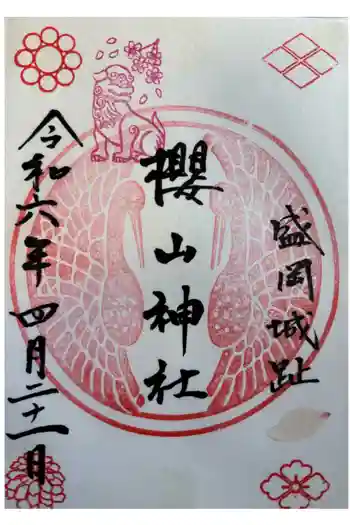 盛岡城趾
櫻山神社
令和六年四月二十一日